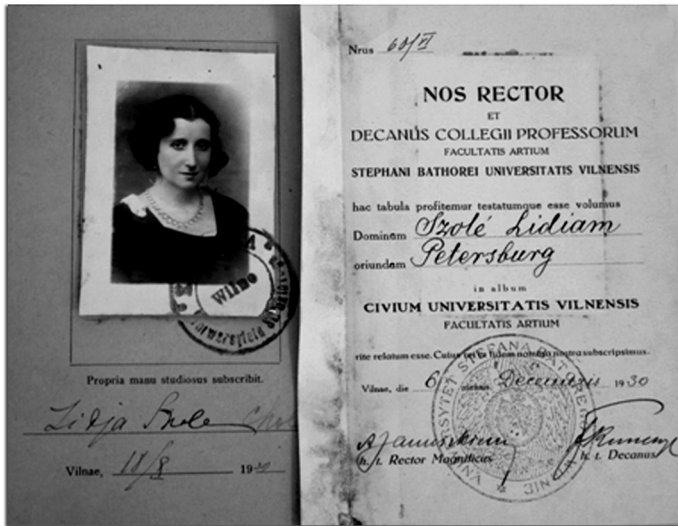 Wilno
Propria manu studiosus subscribit.
Lidja
Vilnae, 18/X 1930
Nrus 60/VI
NOS RECTOR
ET
DECANUS COLLEGII PROFESSORUM
FACULTATIS ARTIUM
STEPHANI BATHOREI UNIVERSITATIS VILNENSIS
hac tabula profitemur testatumque esse volumus
Dominam Szolé Lidiam
oriundam Petersburg
in album
CIVIUM UNIVERSITATIS VILNENSIS
FACULTATIS ARTIUM
rite relatum esse. Cuius rei in fidem nomina nostra subscripsimus.
Vilnae, die 6 mensis Decembris 1930
h. t. Rector Magnificus
h. t. Decanus